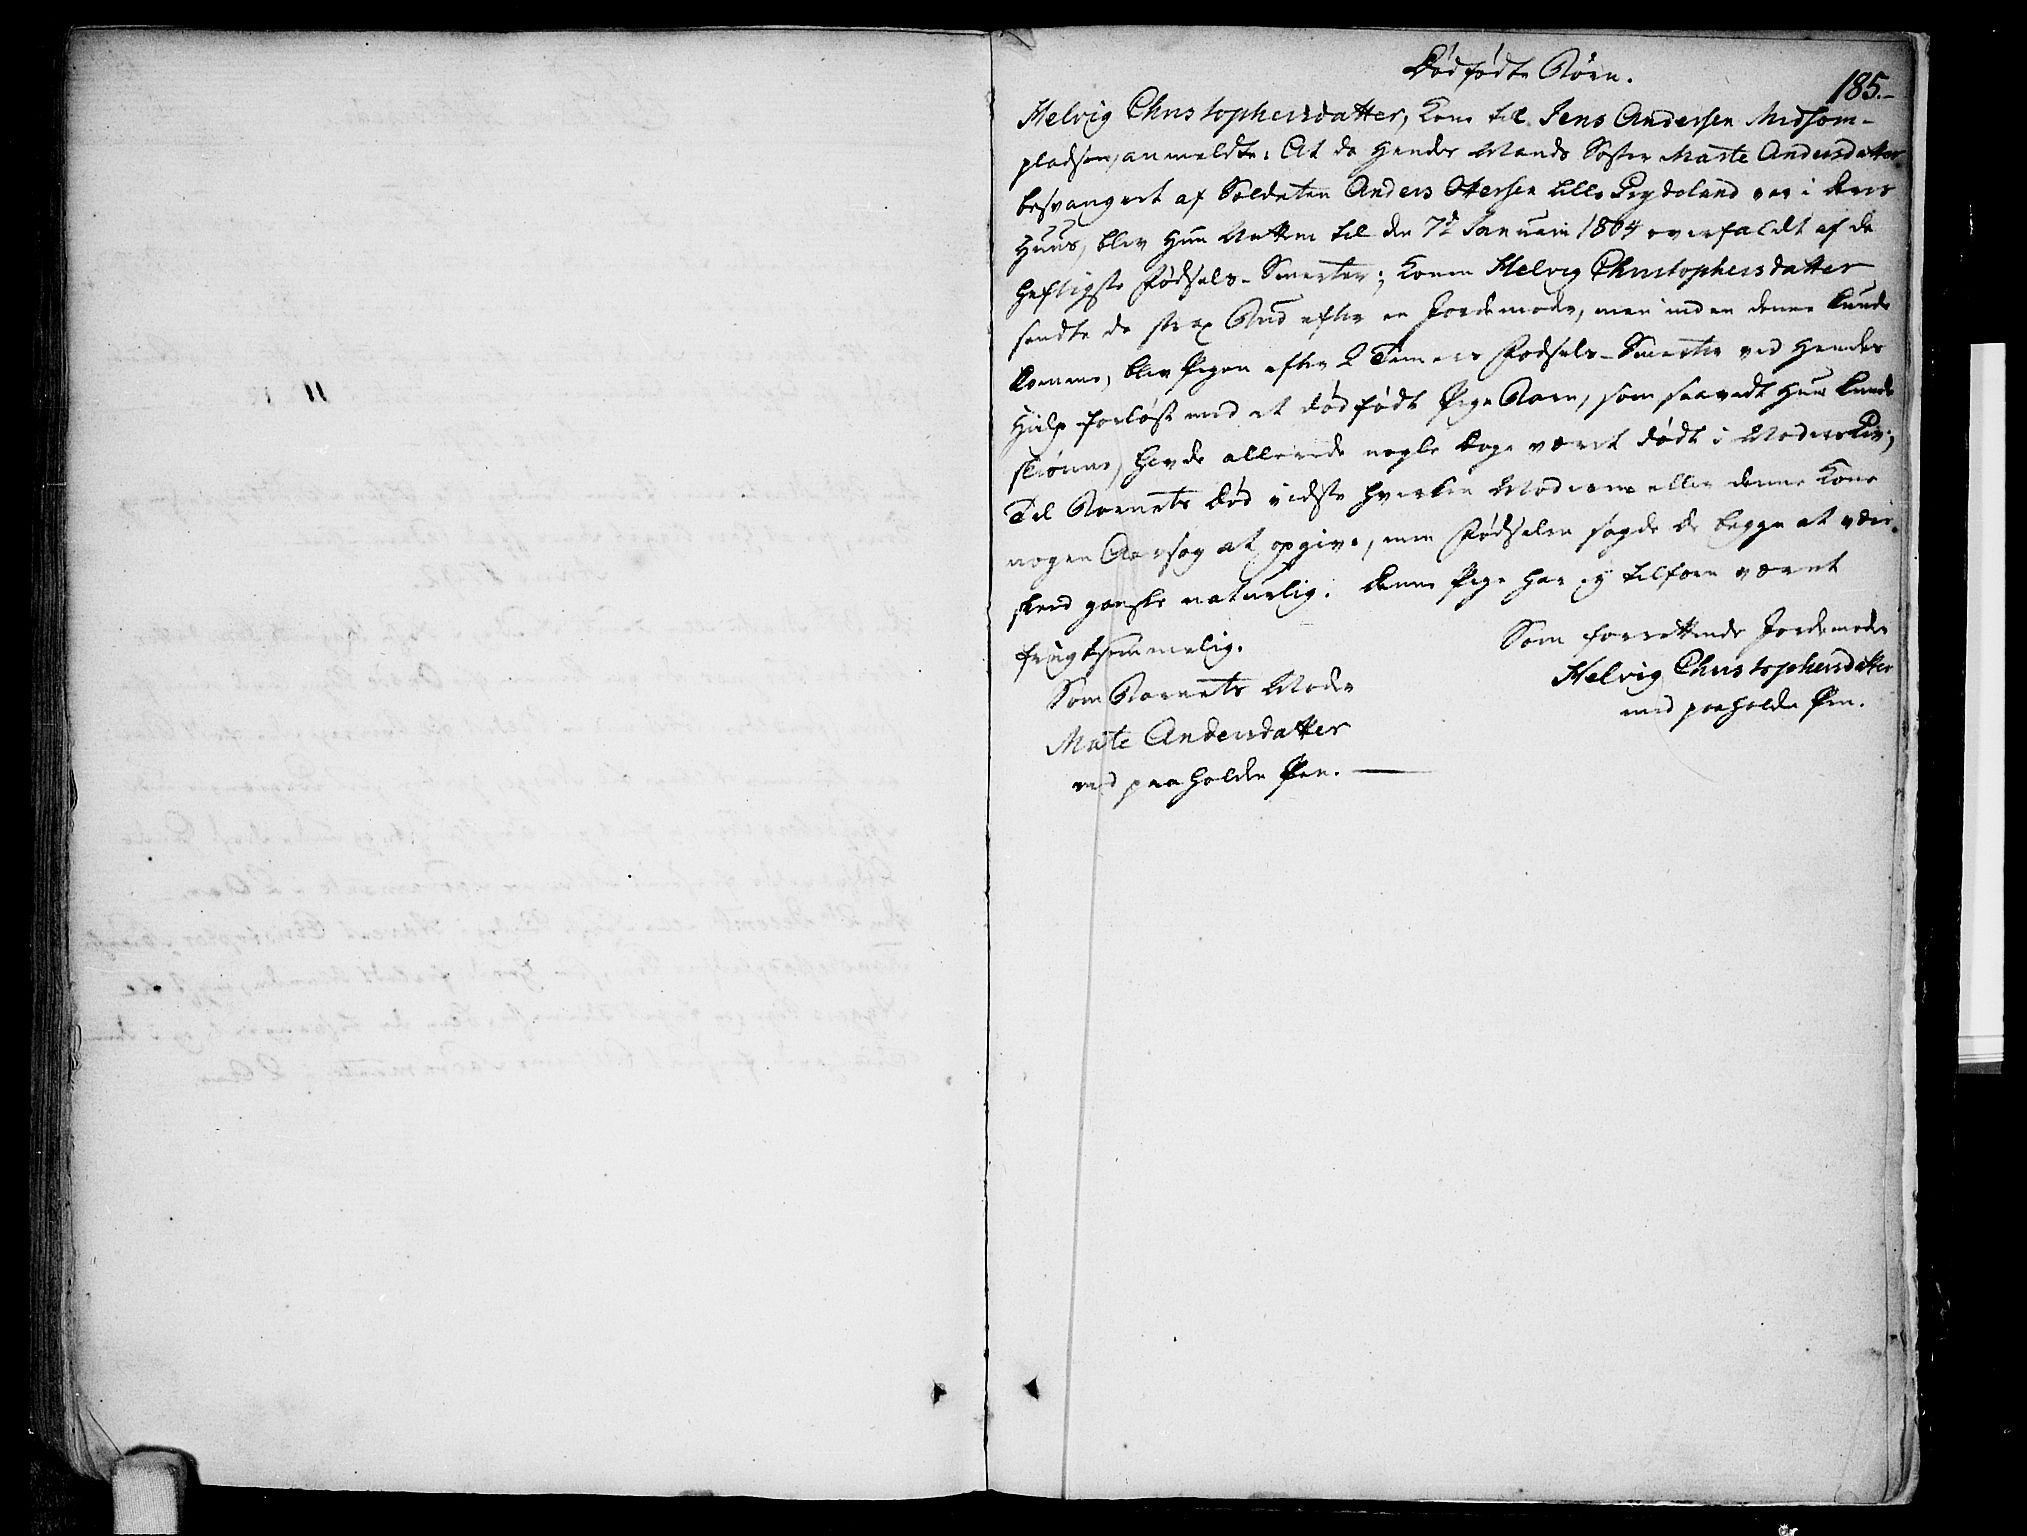 Dødfødte Börn.
185.-
Helvig Christophersdatter, Kone til Jens Andersen Midsom-
pladsen, anmeldte: At da hendes Mands Søster Marte Andersdatter
besvangert af Soldaten Anders Ottersen lille var i deres
Huus, blev hun Natten til den 7d Januarii 1804 overfaldt af de
heftigste Fødsels-Smerter; Konen Helvig Christophersdatter
sendte da strax Bud efter en Jordemoder, men inden denne kunde
komme, blev Pigen efter 2 Timers Fødsels-Smerter ved hendes
Hielp forløst med et dødfødt Pige Barn, som saavidt hun kunde
skiönne, havde allerede nogle Dage været dødt i Moders Liv;
Til Barnets Død vidste hverken Moderen eller denne Kone
nogen Aarsag at opgive, men Fødselen sagde de begge at være
skeed ganske naturlig. Denne Pige har ej tilforn været
frugtsommelig.
Som forrettende Jordemoder
Helvig Christophersdatter
med paaholden Pen.
Som Barnets Moder
Marte Andersdatter
med paaholden Pen. —